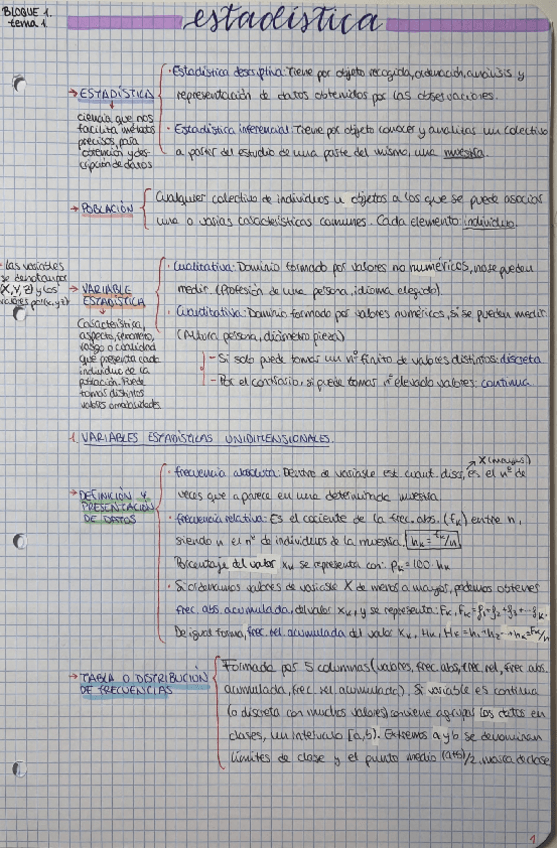 BLOQUE 1.
tema 1
estadística
→ ESTADÍSTICA
ciencia que nos
facilita métodos
precisos, para
obtención y des-
cripción de datos
· Estadística descriptiva: Tiene por objeto recogida, ordenación, análisis y
representación de datos obtenidos por las observaciones.
· Estadística inferencial: Tiene por objeto conocer y analizar un colectivo
a partir del estudio de una parte del mismo, una muestra.
→ POBLACIÓN
Cualquier colectivo de individuos u objetos a los que se puede asociar
una o varias características comunes. Cada elemento: individuo.
· Las variables
se denotan por
(X, Y, Z) y los
valores por (x, y, z)
→ VARIABLE
ESTADÍSTICA
Característica,
aspecto, fenómeno,
rasgo o cualidad
que presenta cada
individuo de la
población. Puede
tomar distintos
valores o modalidades.
· Cualitativa: Dominio formado por valores no numéricos, no se pueden
medir (Profesión de una persona, idioma elegido)
· Cuantitativa: Dominio formado por valores numéricos, si se pueden medir
(Altura persona, diámetro pieza)
- Si solo puede tomar un nº finito de valores distintos: discreta
- Por el contrario, si puede tomar nº elevado valores: continua
1. VARIABLES ESTADÍSTICAS UNIDIMENSIONALES.
→ DEFINICIÓN Y
PRESENTACIÓN
DE DATOS
X (mayus)
· frecuencia absoluta: Dentro de variable est. cuant. disc, es el nº de
veces que aparece en una determinada muestra.
· frecuencia relativa: Es el cociente de la frec. abs. (fk) entre n,
siendo n el nº de individuos de la muestra. hk = fk/n
Porcentaje del valor xk se representa con: Pk = 100 · hk
· Si ordenamos valores de variable X de menor a mayor, podemos obtener
frec. abs. acumulada, del valor xk, y se representa: Fk, Fk = f1 + f2 + f3 + ... fk.
De igual forma, frec. rel. acumulada del valor xk, Hk, Hk = h1 + h2 ... + hk = Fk/n
→ TABLA O DISTRIBUCIÓN
DE FRECUENCIAS
Formada por 5 columnas (valores, frec. abs, frec. rel, frec abs.
acumulada, frec. rel acumulada). Si variable es continua
(o discreta con muchos valores) conviene agrupar los datos en
clases, un intervalo [a, b). Extremos a y b se denominan
límites de clase y el punto medio (a+b)/2, marca de clase
1